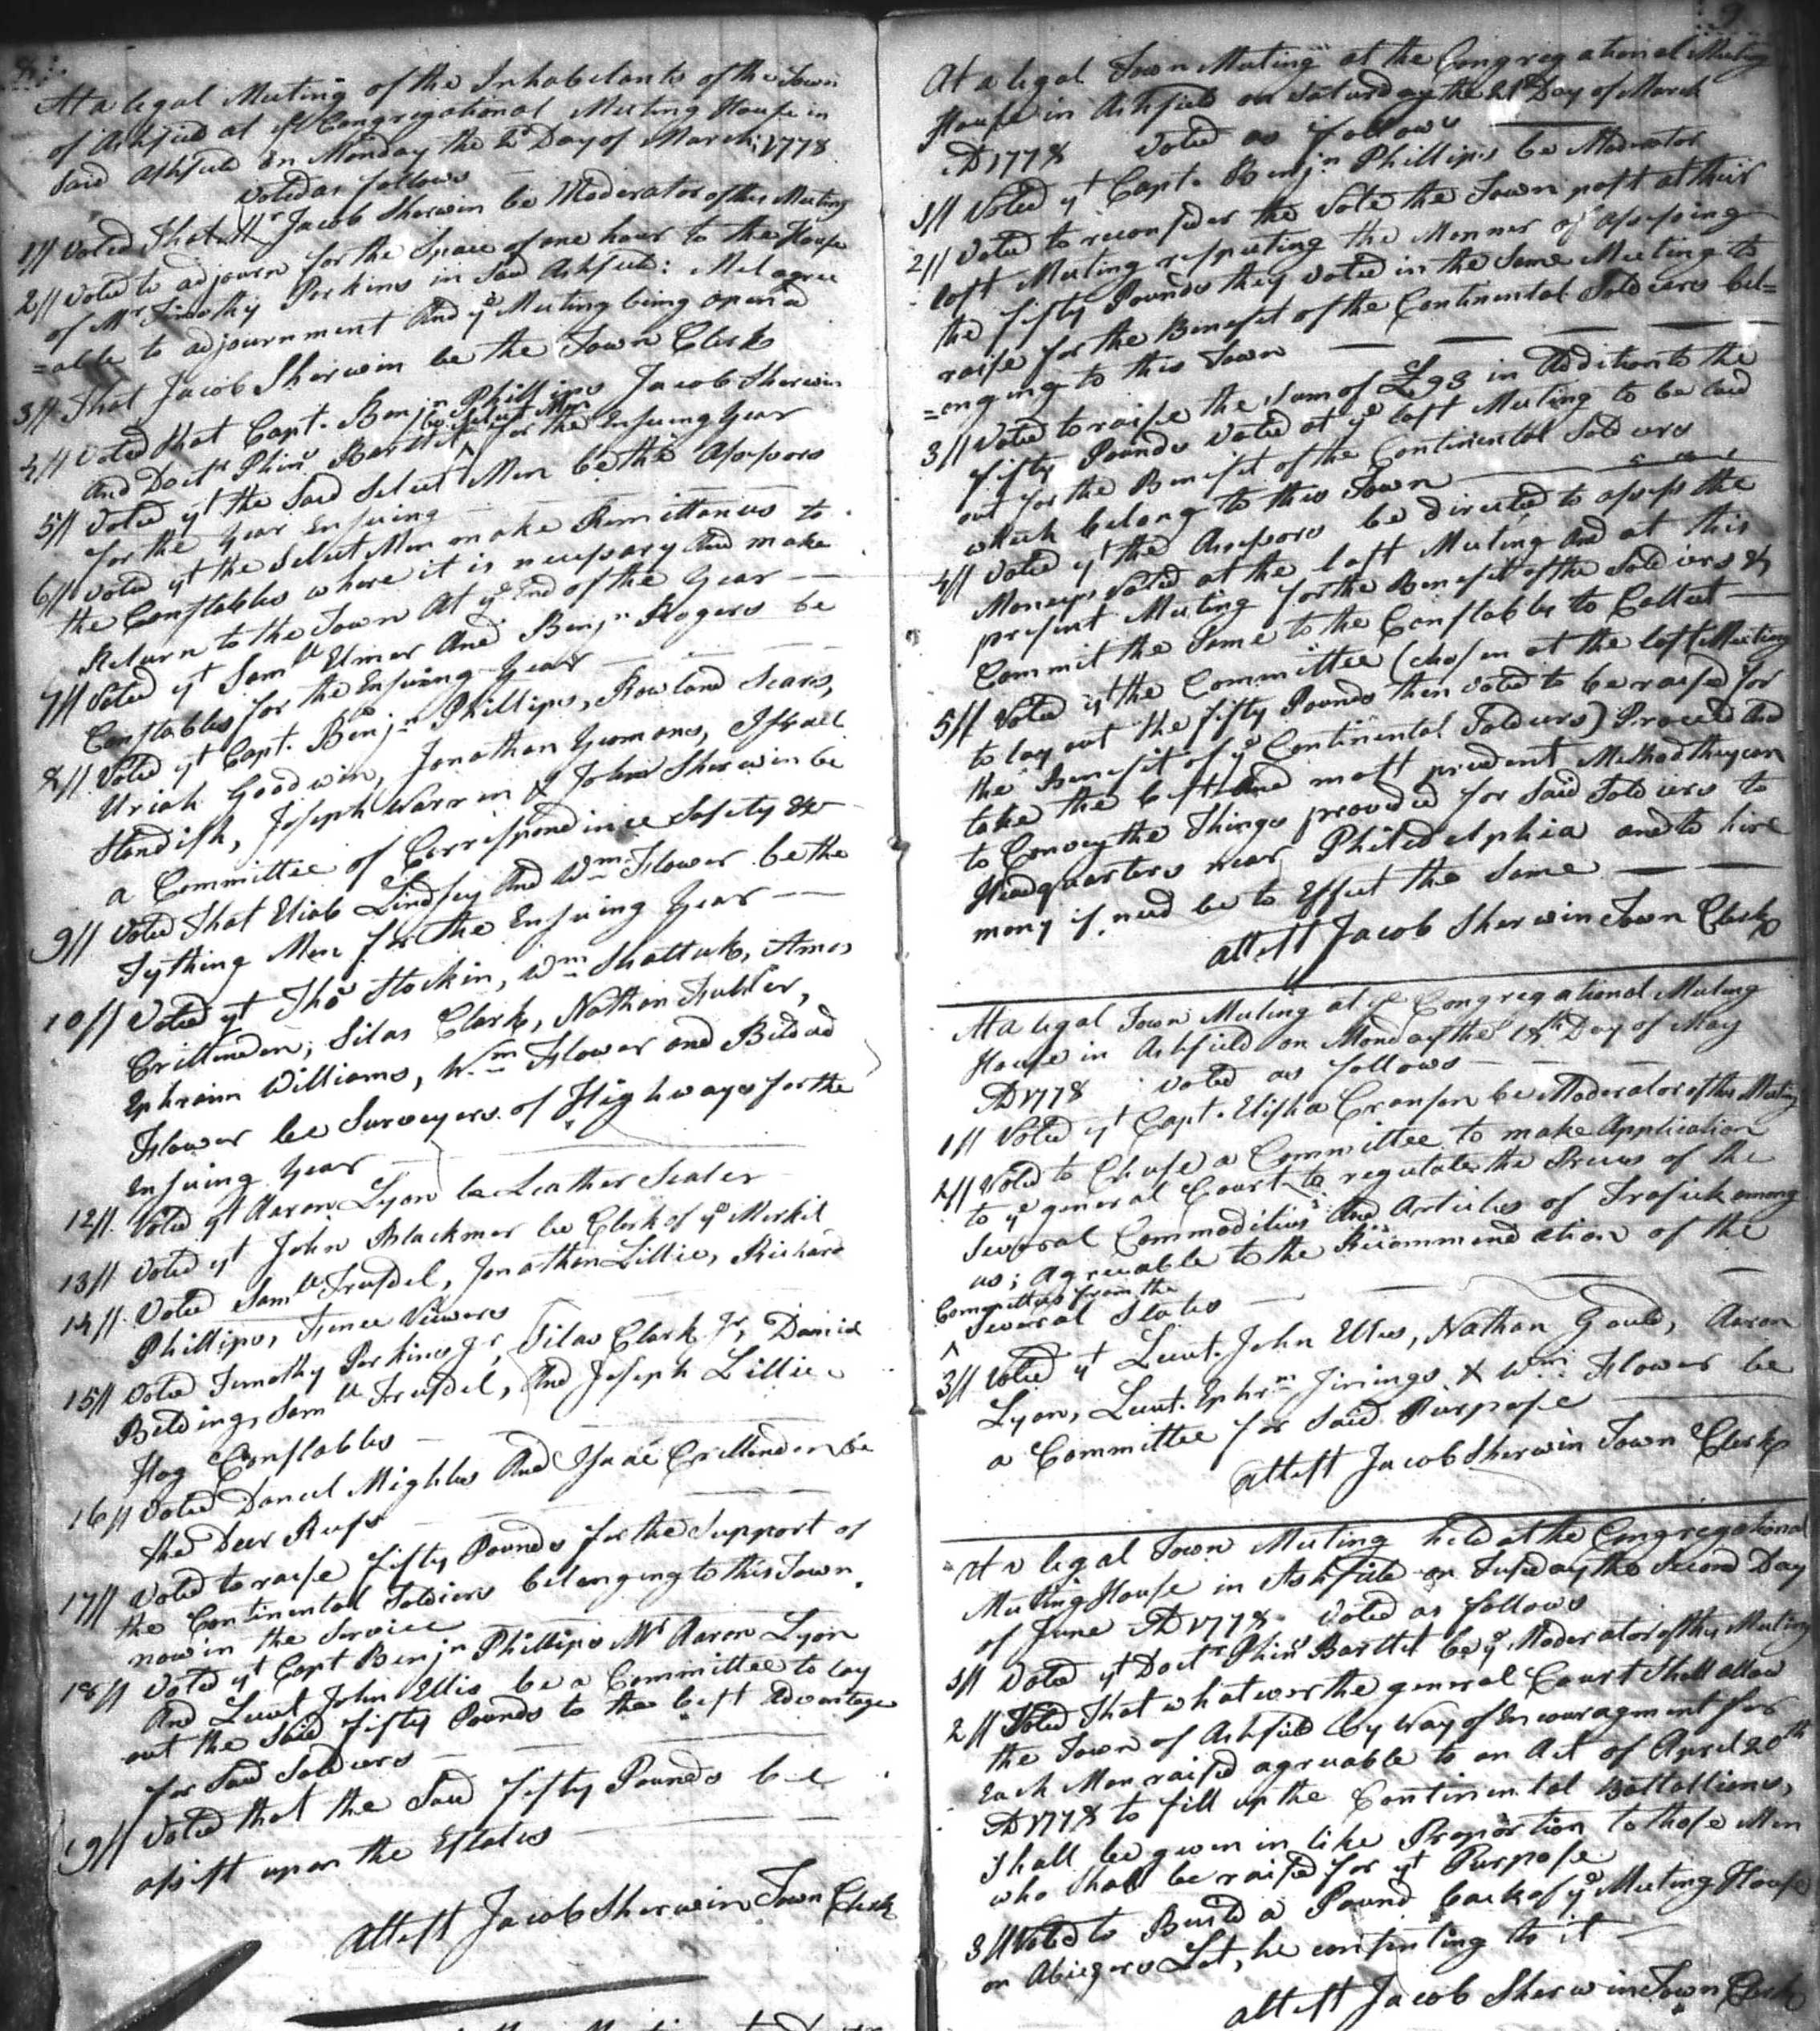 8
At a legal Meeting of the Inhabitants of the Town
of Ashfield at ye Congregational Meeting House in
said Ashfield on Monday the 2d Day of March: 1778
Voted as follows
1// Voted That Mr Jacob Sherwin be Moderator of this Meeting
2// Voted to adjourn for the Space of one hour to the House
of Mr Timothy Perkins in said Ashfield: Met agree
=able to adjournment And ye Meeting being opened
3// That Jacob Sherwin be the Town Clerk
4// Voted that Capt. Benjn Phillips Jacob Sherwin
be Select Men
And Doctr Phins Bartlet ^ for the Ensuing Year
5// Voted yt the Said Select Men be the Assessors
for the Year Ensuing
6// Voted yt the Select Men make Remittances to
the Constables where it is necessary And make
Return to the Town At ye End of the Year
7// Voted yt Samll Elmer And Benjn Rogers be
Constables for the Ensuing Year
8// Voted yt Capt. Benjn Phillips, Rowland Sears,
Uriah Goodwin, Jonathan Yeomans, Israel
Standish, Joseph Warren & John Sherwin be
a Committee of Correspondince Safety &c
9// Voted That Eliab Lindsey And Wm Flower be the
Tything Men for the Ensuing Year
10// Voted yt Thos Stockin, Wm Shattuck, Amos
Crittenden, Silas Clark, Nathan Fuller,
Ephraim Williams, Wm Flower and Bildad
Flower be Surveyers of Highways for the
Ensuing Year
12// Voted yt Aaron Lyon be Leather Sealer
13// Voted yt John Blackmer be Clerk of ye Merkit
14// Voted Samll Trusdel, Jonathan Lillie, Richard
Phillips, Fence Viewers
15// Voted Timothy Perkins Jr, Silas Clark Jr, Daniel
Belding, Samll Trusdel, And Joseph Lillie
Hog Constables
16// Voted Daniel Mighls And Isaac Crittenden be
the Deer Reefs
17// Voted to raise fifty Pounds for the Support of
the Continental Soldiers belonging to this Town
now in the Service
18// Voted yt Capt Benjn Phillips Mr Aaron Lyon
And Lieut John Ellis be a Committee to lay
out the Said fifty Pounds to the best Advantage
for Said Soldiers
19// Voted that the Said fifty Pounds be
assist upon the Estates
Attest Jacob Sherwin Town Clerk
9
At a legal Town Meeting at the Congregational Meeting
House in Ashfield on Saturday the 21st Day of March
AD 1778 Voted as follows
1// Voted yt Capt. Benjn Phillips be Moderator
2// Voted to reconsider the Vote the Town past at their
last Meeting respecting the Menner of assessing
the fifty Pounds they voted in the Same Meeting to
raise for the Benefit of the Continental Soldiers bel=
=onging to this Town
3// Voted to raise the Sum of £93 in Addition to the
fifty Pounds Voted at ye last Meeting to be laid
out for the Benefit of the Continental Soldiers
which belong to this Town
4// Voted yt the Assessors be directed to assess the
Moneys Voted at the last Meeting And at this
present Meeting for the Benefit of the Soldiers &
Commit the Same to the Constables to Collect
5// Voted yt the Committee (chosen at the last Meeting
to lay out the fifty Pounds then voted to be raised for
the Benefit of ye Continental Soldiers) Proceed And
take the best And most prudent Method they can
to Convey the Things provided for Said Soldiers to
Headquarters near Philedelphia and to hire
mony if need be to Effect the Same
attest Jacob Sherwin Town Clerk
At a legal Town Meeting at ye Congregational Meeting
House in Ashfield on Monday the 18th Day of May
AD 1778 voted as follows
1// Voted yt Capt. Elisha Cranson be Moderator of this Meeting
2// Voted to Chuse a Committee to make Application
to ye general Court to regulate the Prices of the
Several Commodities And Articles of Trafick among
us; Agreeable to the Recommendation of the
Committees from the
^ Several States
3// Voted yt Lieut. John Ellis, Nathan Gould, Aaron
Lyon, Lieut. Ephrm Jinings & Wm Flower be
a Committee for Said Purpose
attest Jacob Sherwin Town Clerk
At a legal Town Meeting held at the Congregational
Meeting House in Ashfield on Tusday the Second Day
of June AD 1778 Voted as follows
1// Voted yt Doctr Phins Bartlet be ye Moderator of this Meeting
2// Voted That whatever the general Court Shall allow
the Town of Ashfield by Way of Encouragment for
Each Man raised agreeable to an Act of April 20th
AD 1778 to fill up the Continental Battallions,
Shall be given in like Proportion to those Men
who Shall be raised for yt Purpose
3// Voted to Build a Pound back of ye Meeting House
on Abiezers Lot, he consenting to it
attest Jacob Sherwin Town Clerk